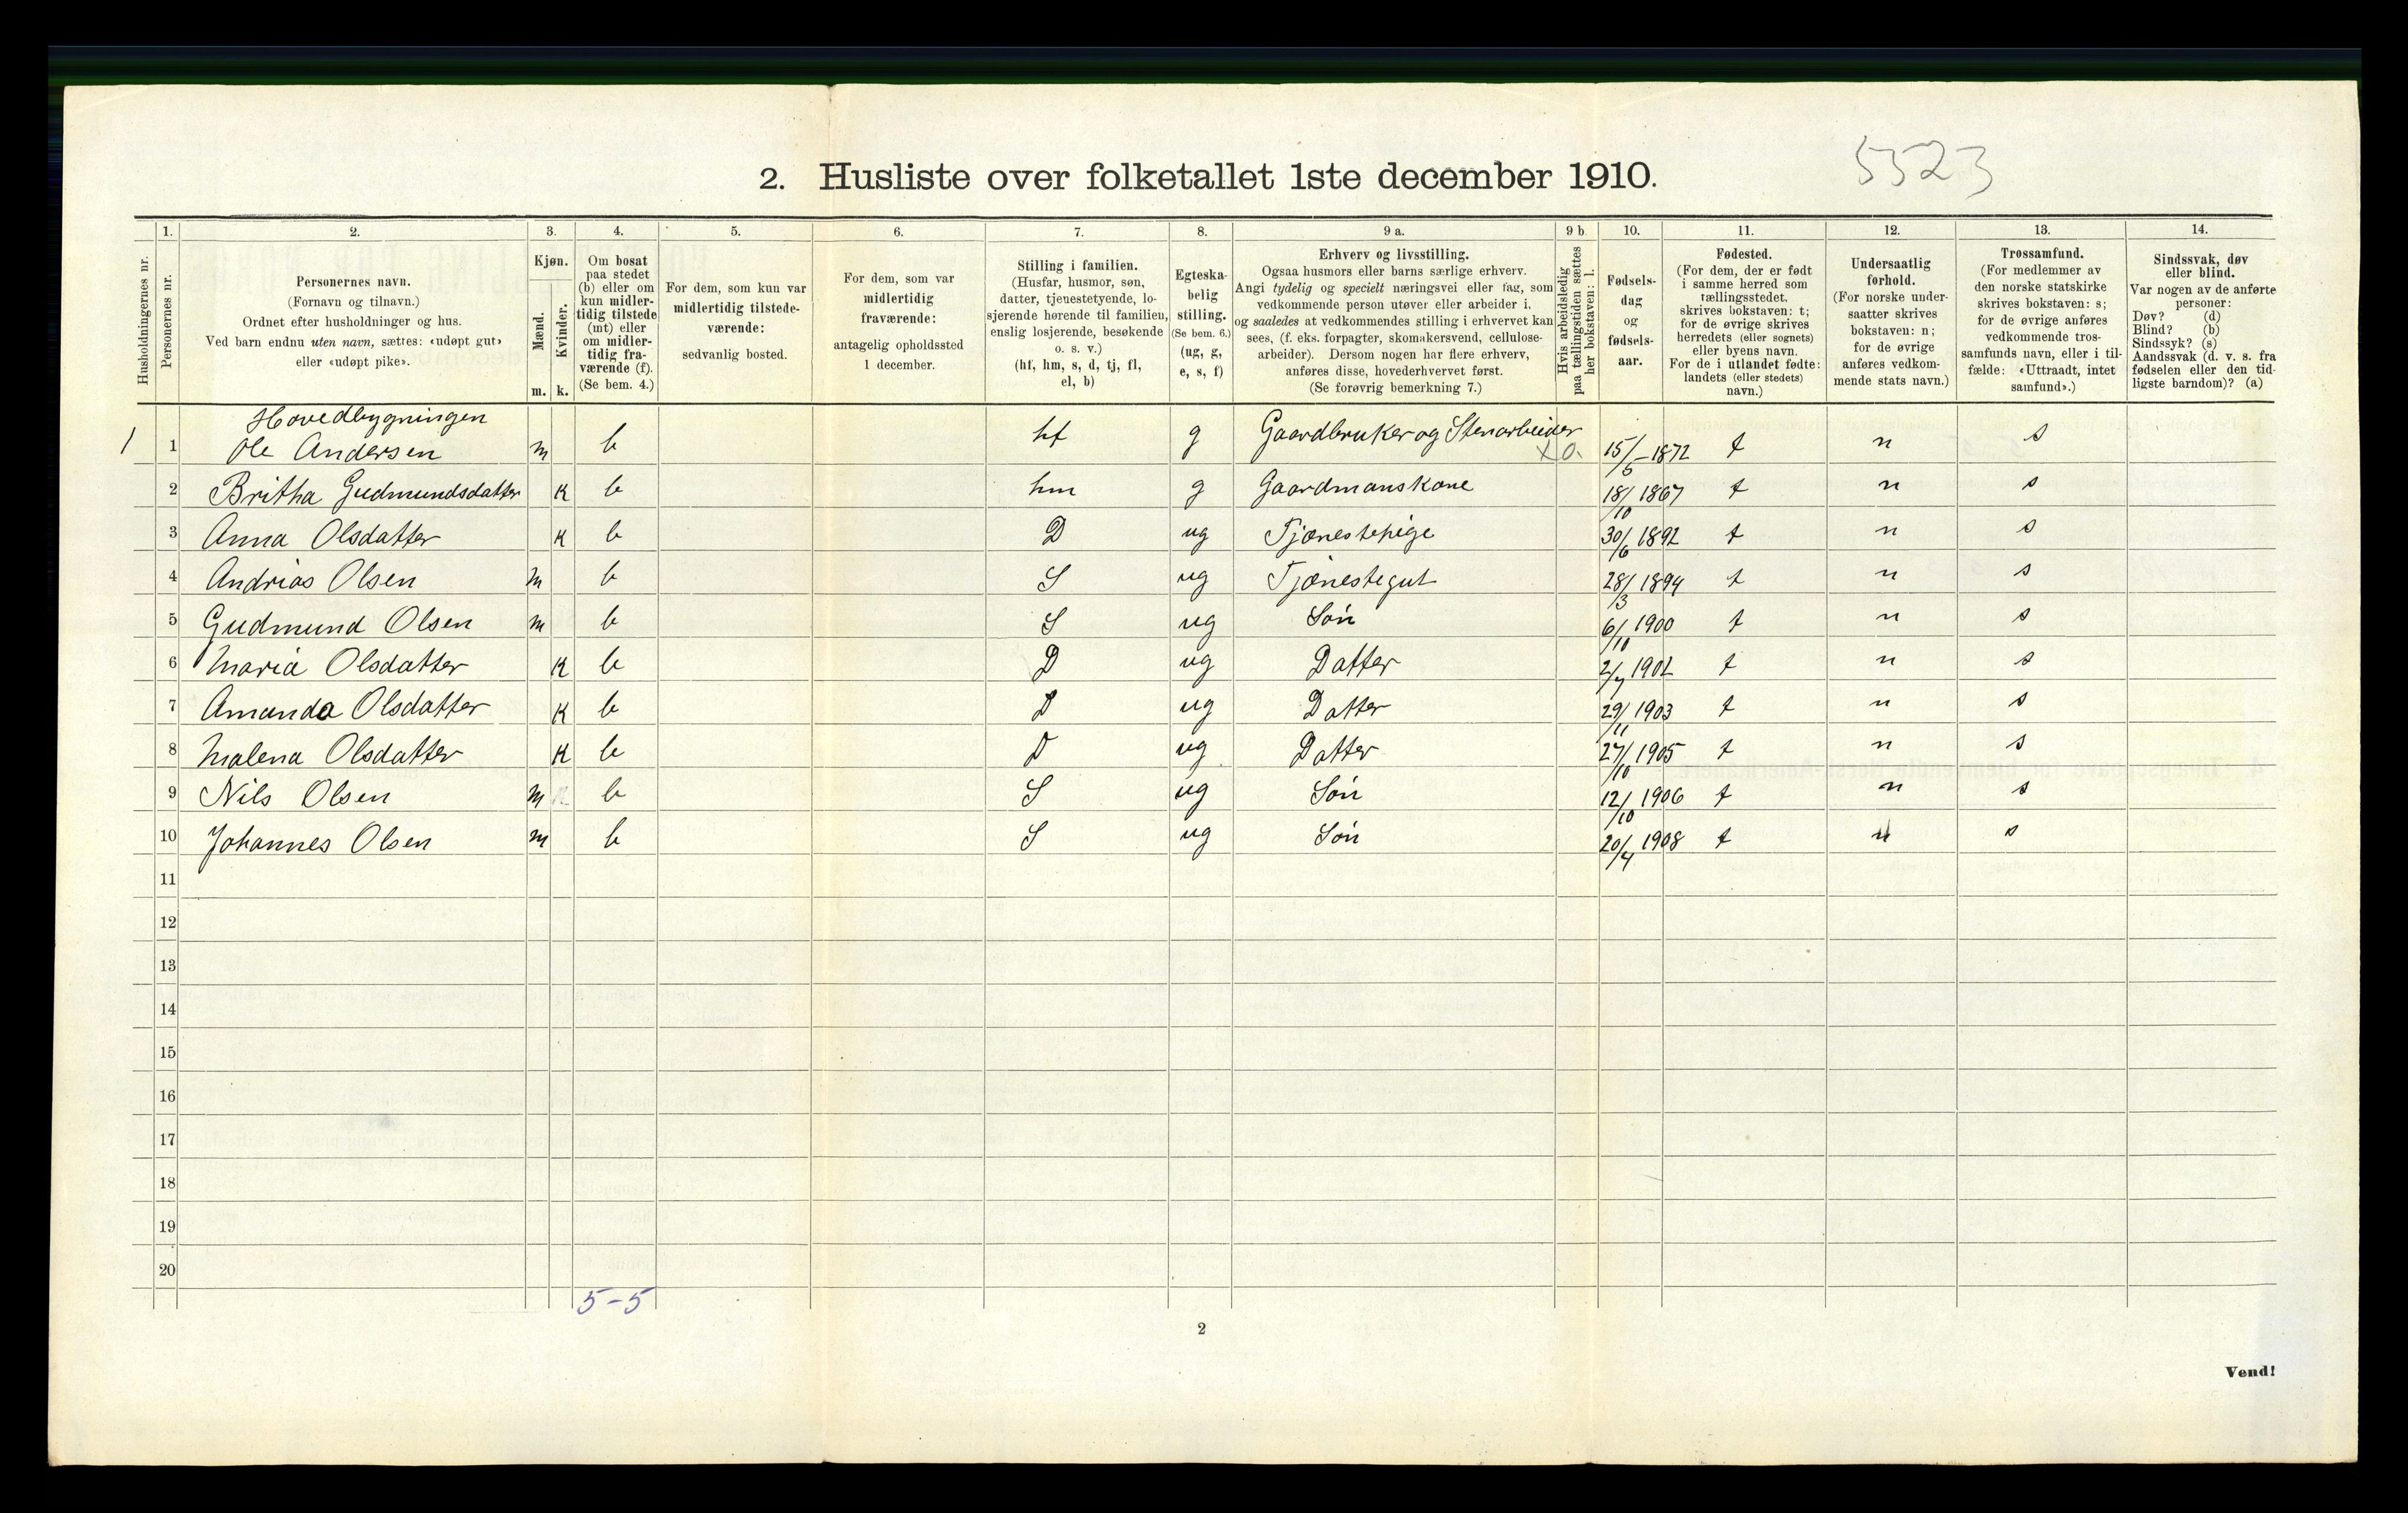 5523
2. Husliste over folketallet 1ste december 1910.
Husholdningernes nr.
1.
Personernes nr.
2.
Personernes navn.
(Fornavn og tilnavn.)
Ordnet efter husholdninger og hus.
Ved barn endnu uten navn, sættes: «udøpt gut»
eller «udøpt pike».
3.
Kjøn.
Mænd.
Kvinder.
m. k.
4.
Om bosat
paa stedet
(b) eller om
kun midler-
tidig tilstede
(mt) eller
om midler-
tidig fra-
værende (f).
(Se bem. 4.)
5.
For dem, som kun var
midlertidig tilstede-
værende:
sedvanlig bosted.
6.
For dem, som var
midlertidig
fraværende:
antagelig opholdssted
1 december.
7.
Stilling i familien.
(Husfar, husmor, søn,
datter, tjenestetyende, lo-
sjerende hørende til familien,
enslig losjerende, besøkende
o. s. v.)
(hf, hm, s, d, tj, fl,
el, b)
8.
Egteska-
belig
stilling.
(Se bem. 6.)
(ug, g,
e, s, f)
9 a.
Erhverv og livsstilling.
Ogsaa husmors eller barns særlige erhverv.
Angi tydelig og specielt næringsvei eller fag, som
vedkommende person utøver eller arbeider i,
og saaledes at vedkommendes stilling i erhvervet kan
sees, (f. eks. forpagter, skomakersvend, cellulose-
arbeider). Dersom nogen har flere erhverv,
anføres disse, hovederhvervet først.
(Se forøvrig bemerkning 7.)
9 b
Hvis arbeidsledig
paa tællingstiden sættes
her bokstaven: l.
10.
Fødsels-
dag
og
fødsels-
aar.
11.
Fødested.
(For dem, der er født
i samme herred som
tællingsstedet,
skrives bokstaven: t;
for de øvrige skrives
herredets (eller sognets)
eller byens navn.
For de i utlandet fødte:
landets (eller stedets)
navn.)
12.
Undersaatlig
forhold.
(For norske under-
saatter skrives
bokstaven: n;
for de øvrige
anføres vedkom-
mende stats navn.)
13.
Trossamfund.
(For medlemmer av
den norske statskirke
skrives bokstaven: s;
for de øvrige anføres
vedkommende tros-
samfunds navn, eller i til-
fælde: «Uttraadt, intet
samfund».)
14.
Sindssvak, døv
eller blind.
Var nogen av de anførte
personer:
Døv? (d)
Blind? (b)
Sindssyk? (s)
Aandssvak (d. v. s. fra
fødselen eller den tid-
ligste barndom)? (a)
Hovedbygningen
1 1 Ole Andersen m b hf g Gaardbruker og Stenarbeider x o. 15/6-1872 t n s
2 Britha Gudmundsdatter k b hm g Gaardmanskone 18/10 1867 t n s
3 Anna Olsdatter k b D ug Tjenestepige 30/6 1892 t n s
4 Andrias Olsen m b S ug Tjenestegut 28/3 1894 t n s
5 Gudmund Olsen m b S ug Søn 6/10 1900 t n s
6 Maria Olsdatter k b D ug Datter 2/7 1902 t n s
7 Amanda Olsdatter k b D ug Datter 29/11 1903 t n s
8 Malena Olsdatter k b D ug Datter 27/10 1905 t n s
9 Nils Olsen m b S ug Søn 12/10 1906 t n s
10 Johannes Olsen m b S ug Søn 20/4 1908 t n s
11
12
13
14
15
16
17
18
19
20
5-5
2
Vend!